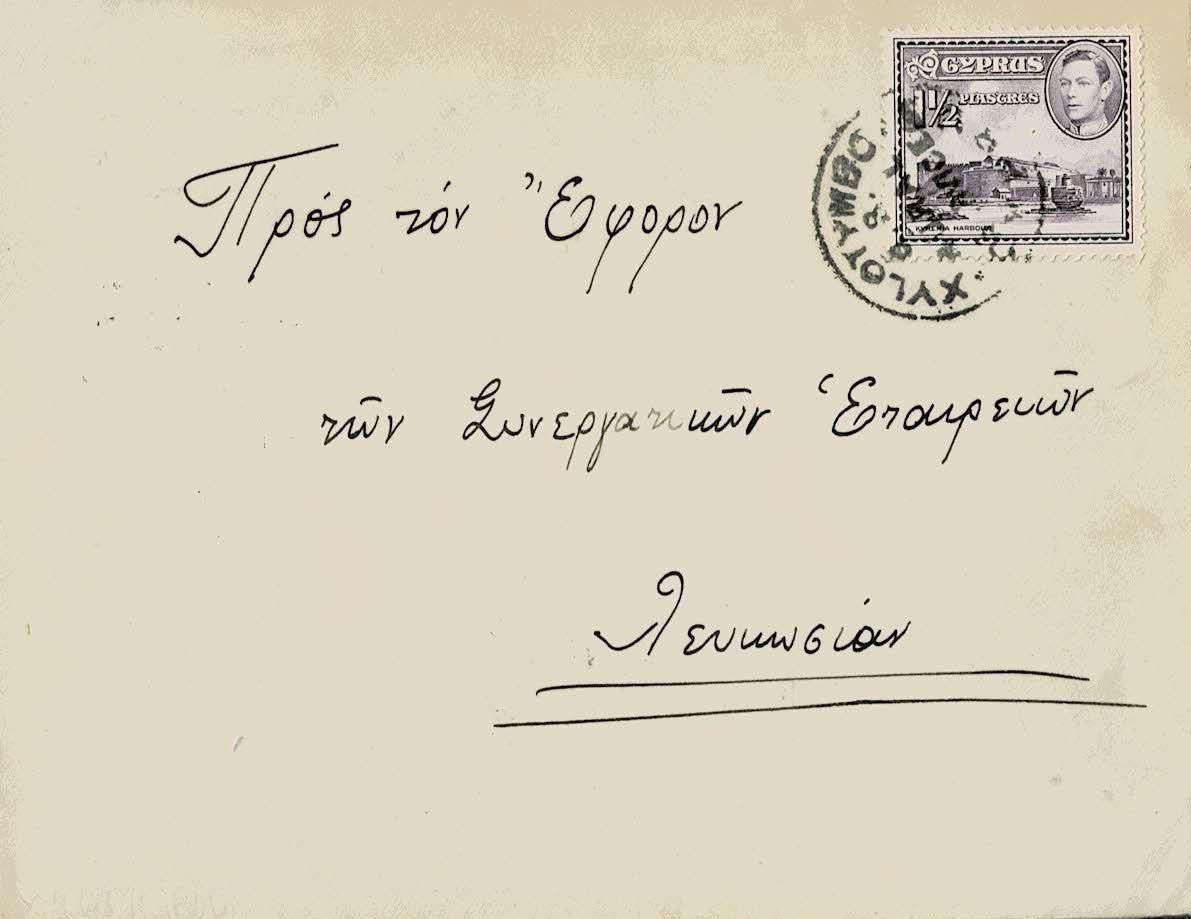 CYPRUS
1½ PIASTRES
KYRENIA HARBOUR
Πρός τόν Ἔφορον
τῶν Συνεργατικῶν Ἑταιρειῶν
Λευκωσίαν